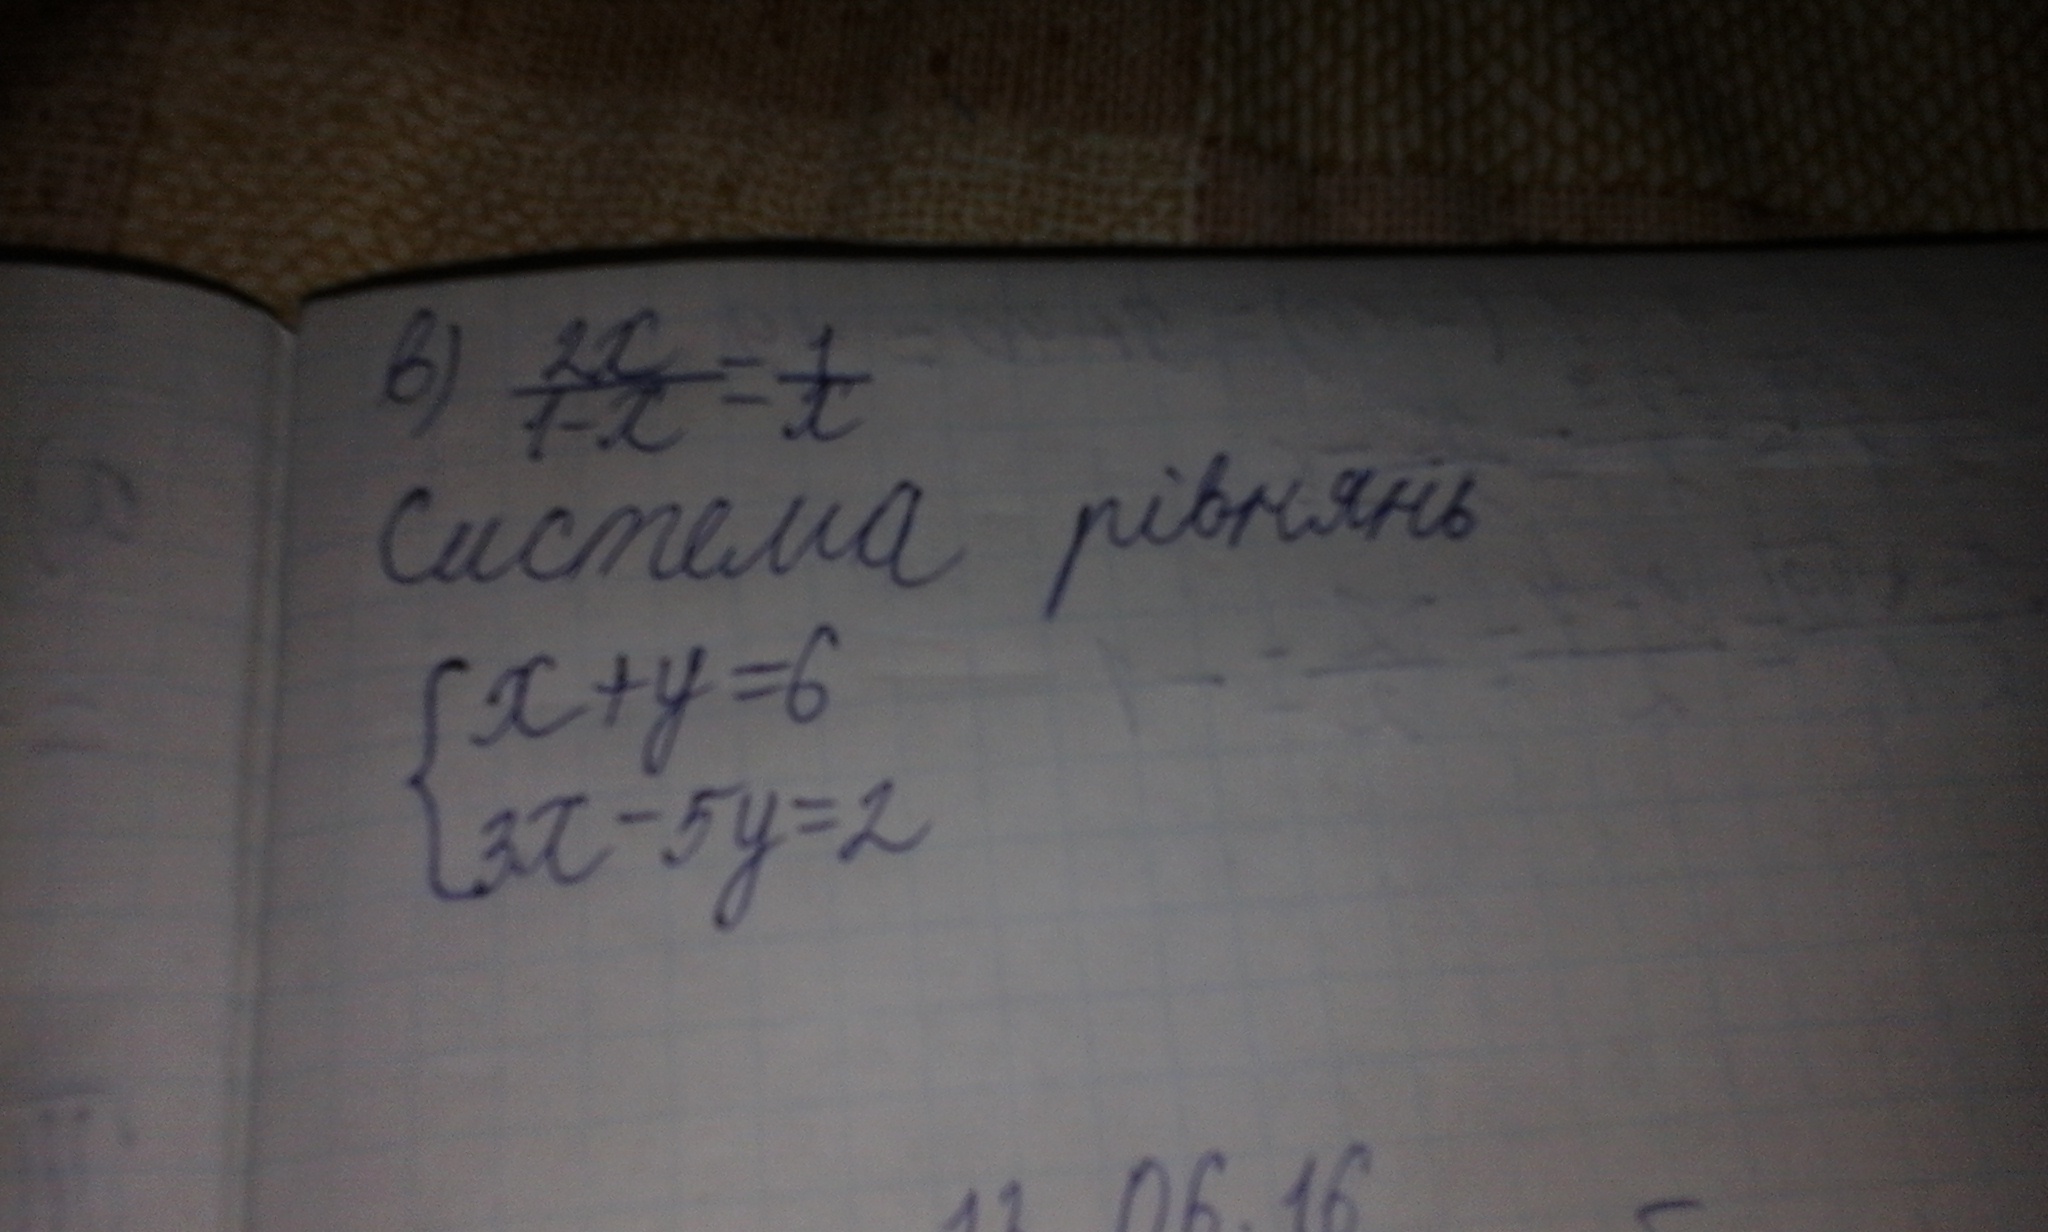 в) 2x/1-x = 1/x
Система рівнянь
{ x+y=6
3x-5y=2
06.16